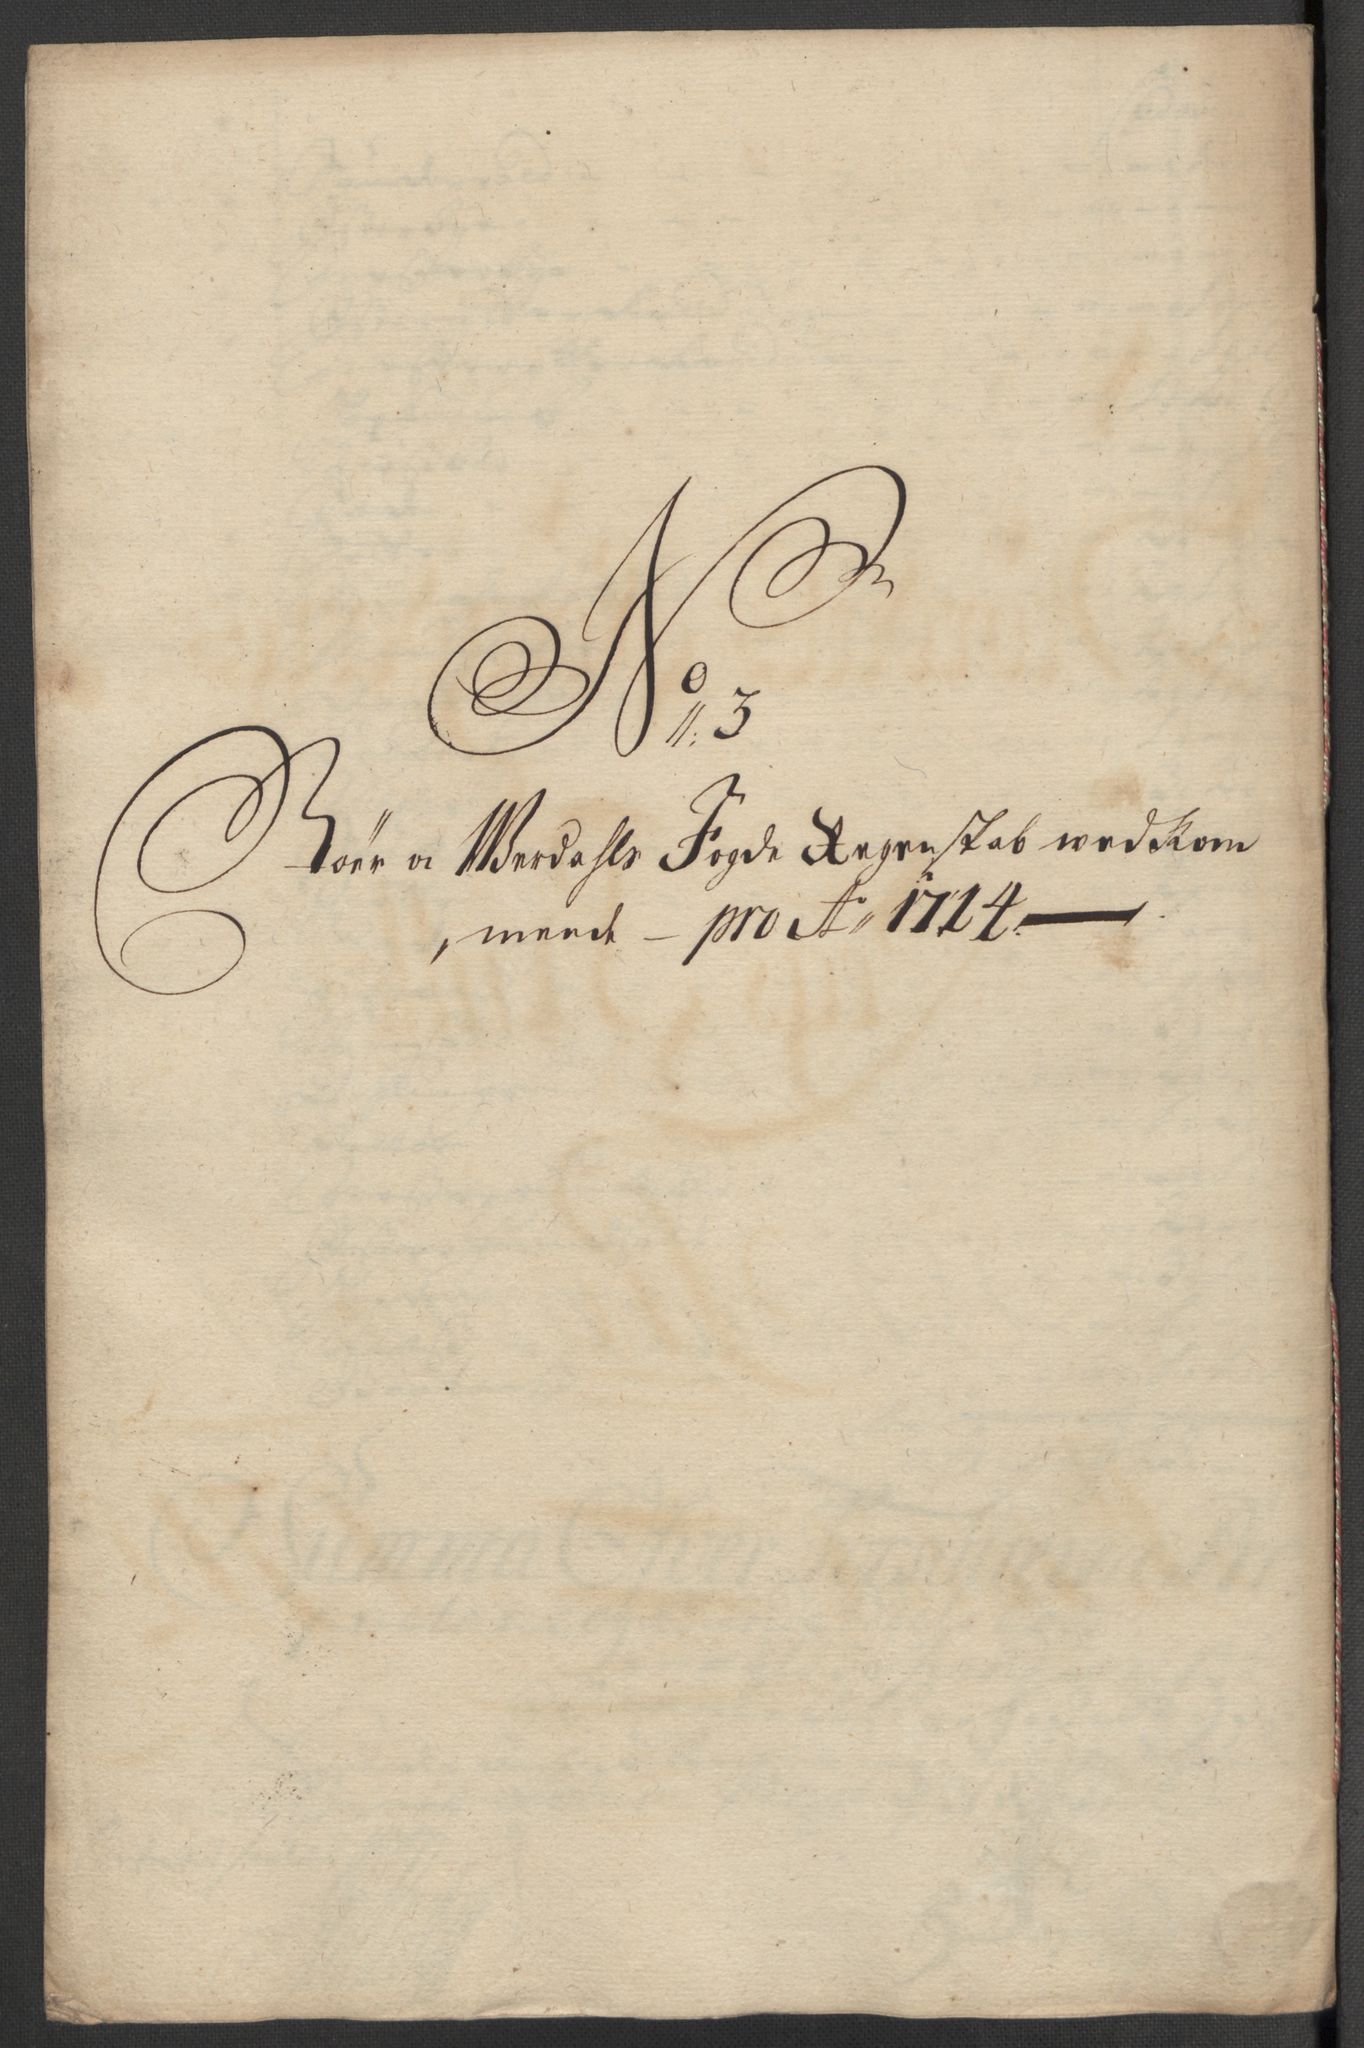 No
: 3
Stör o Werdahls Fogde Regenskab wedkom
mende – pro Ao 1714